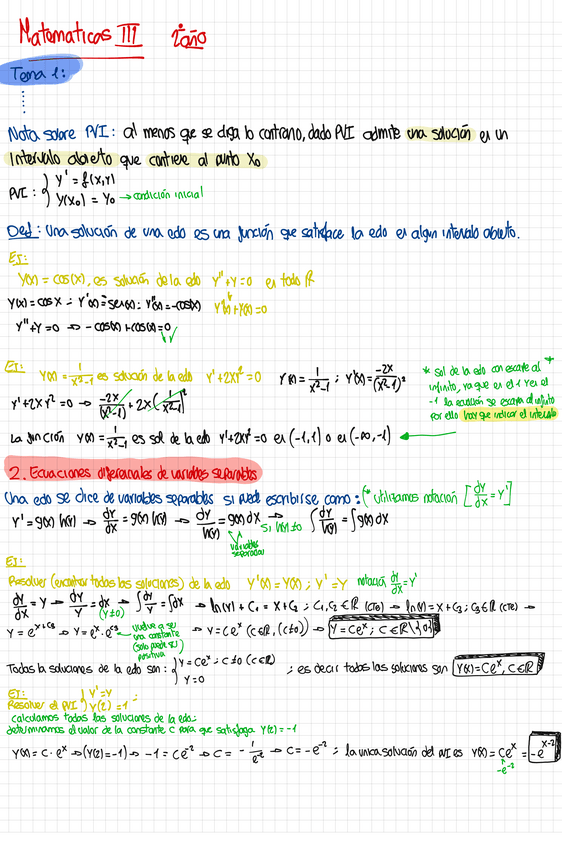 Matematicas III 2º año
Tema 1:
Nota sobre PVI: al menos que se diga lo contrario, dado PVI admite una solución en un
Intervalo abierto que contiene al punto x₀
PVI: { y' = f(x,y)
y(x₀) = y₀ → condición inicial
Def: Una solución de una edo es una función que satisface la edo en algun intervalo abierto.
Ej:
y(x) = cos(x), es solución de la edo y''+y=0 en todo ℝ
y(x) = cos x
y''(x)=-cos(x) y''(x)+y(x)=0
y''+y=0 → -cos(x)+cos(x)=0
Ej: y(x) = 1/(x²-1) es solución de la edo y'+2xy²=0 y(x) = 1/(x²-1) ; y'(x) = -2x/(x²-1)²
* sol de la edo con escape al *
infinito, ya que en el 1 y en el
-1 la ecuación se escapa al infinito
por ello hay que indicar el intervalo
y'+2xy²=0 → -2x/(x²-1)² + 2x(1/(x²-1))²
La función y(x) = 1/(x²-1) es sol de la edo y'+2xy²=0 en (-1,1) o en (-∞,-1)
2. Ecuaciones diferenciales de variables separables
Una edo se dice de variables separables si puede escribirse como: (* utilizamos notación [dy/dx = y']
y' = g(x) h(y) → dy/dx = g(x) h(y) → dy/h(y) = g(x) dx → si h(y)≠0 ∫ dy/h(y) = ∫ g(x) dx
variables
separadas
Ej:
Resolver (encontrar todas las soluciones) de la edo y'(x) = y(x) ; y' = y notación dy/dx = y'
dy/dx = y → dy/y = dx (y≠0) → ∫ dy/y = ∫ dx → ln(y) + C₁ = x + C₂ ; C₁, C₂ ∈ ℝ (cte) → ln(y) = x + C₃ ; C₃ ∈ ℝ (cte) →
y = e^(x+C₃) → y = e^x · e^C₃ → y = Ce^x (C∈ℝ, (C≠0)) → y = Ce^x ; C∈ℝ\{0}
vuelve a ser
una constante
(solo puede ser)
positiva
Todas la soluciones de la edo son: { y = Ce^x ; C≠0 (C∈ℝ)
y = 0
; es decir todas las soluciones son y(x) = Ce^x, C∈ℝ
Ej:
Resolver el PVI { y' = y
y(2) = -1 ;
calculamos todas las soluciones de la edo:
determinamos el valor de la constante C para que satisfaga y(2) = -1
y(x) = C · e^x → (y(2) = -1) → -1 = Ce² → C = - 1/e² → C = -e^-2 ; la unica solución del PVI es y(x) = Ce^x = -e^(x-2)
-e^-2